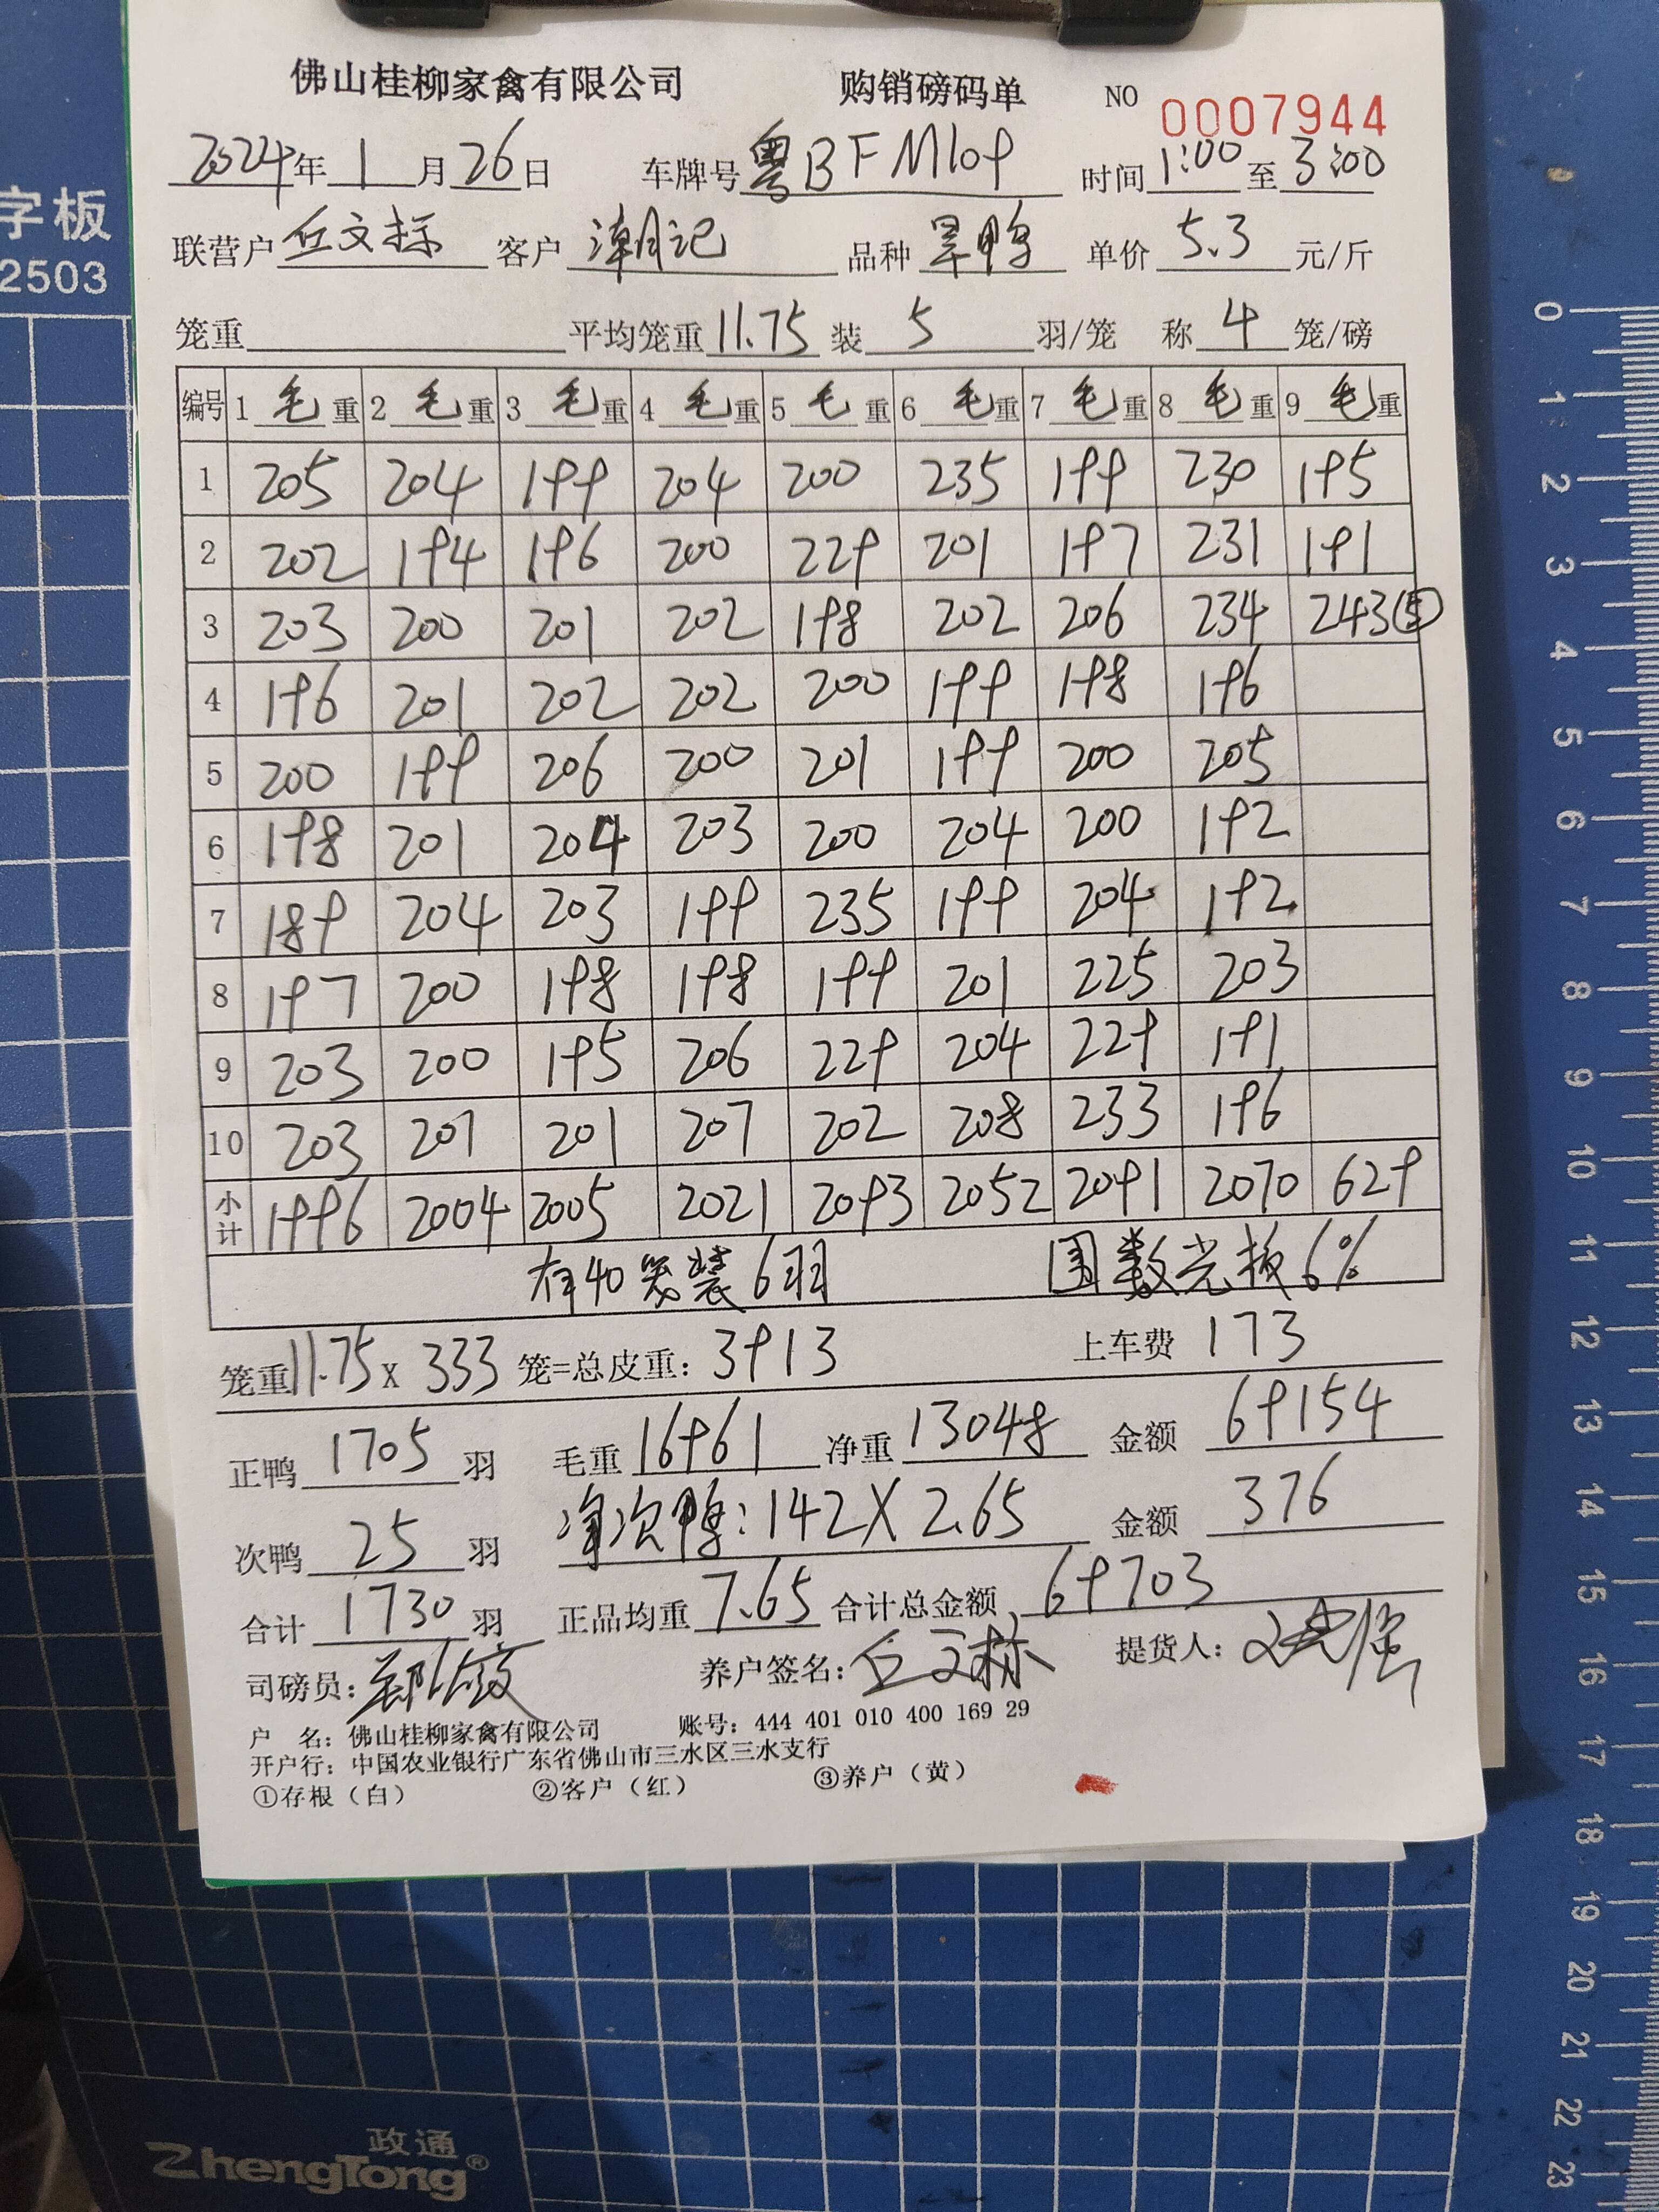 佛山桂柳家禽有限公司 购销磅码单 NO 0007944
2024年 1月 26日 车牌号 粤BFM109 时间 1:00 至 3:00
联营户 丘文标 客户 潮记 品种 旱鸭 单价 5.3 元/斤
笼重 平均笼重 11.75 装 5 羽/笼 称 4 笼/磅
编号 1 毛重 2 毛重 3 毛重 4 毛重 5 毛重 6 毛重 7 毛重 8 毛重 9 毛重
1 205 204 199 204 200 235 199 230 195
2 202 194 196 200 229 201 197 231 191
3 203 200 201 202 198 202 206 234 243⑤
4 196 201 202 202 200 199 198 196
5 200 199 206 200 201 199 200 205
6 198 201 204 203 200 204 200 192
7 189 204 203 199 235 199 204 192
8 197 200 198 198 199 201 225 203
9 203 200 195 206 229 204 229 191
10 203 201 201 207 202 208 233 196
小计 1996 2004 2005 2021 2093 2052 2091 2070 629
有40笼装6羽 6%
笼重 11.75 X 333 笼=总皮重: 3913 上车费 173
正鸭 1705 羽 毛重 16961 净重 13048 金额 69154
次鸭 25 羽 净次鸭: 142X2.65 金额 376
合计 1730 羽 正品均重 7.65 合计总金额 69703
司磅员: 养户签名: 丘文标 提货人:
户 名: 佛山桂柳家禽有限公司 账号: 444 401 010 400 169 29
开户行: 中国农业银行广东省佛山市三水区三水支行
①存根（白） ②客户（红） ③养户（黄）
字板
2503
0
1
2
3
4
5
6
7
8
9
10
11
12
13
14
15
16
17
18
19
20
21
22
23
政通
ZhengTong®